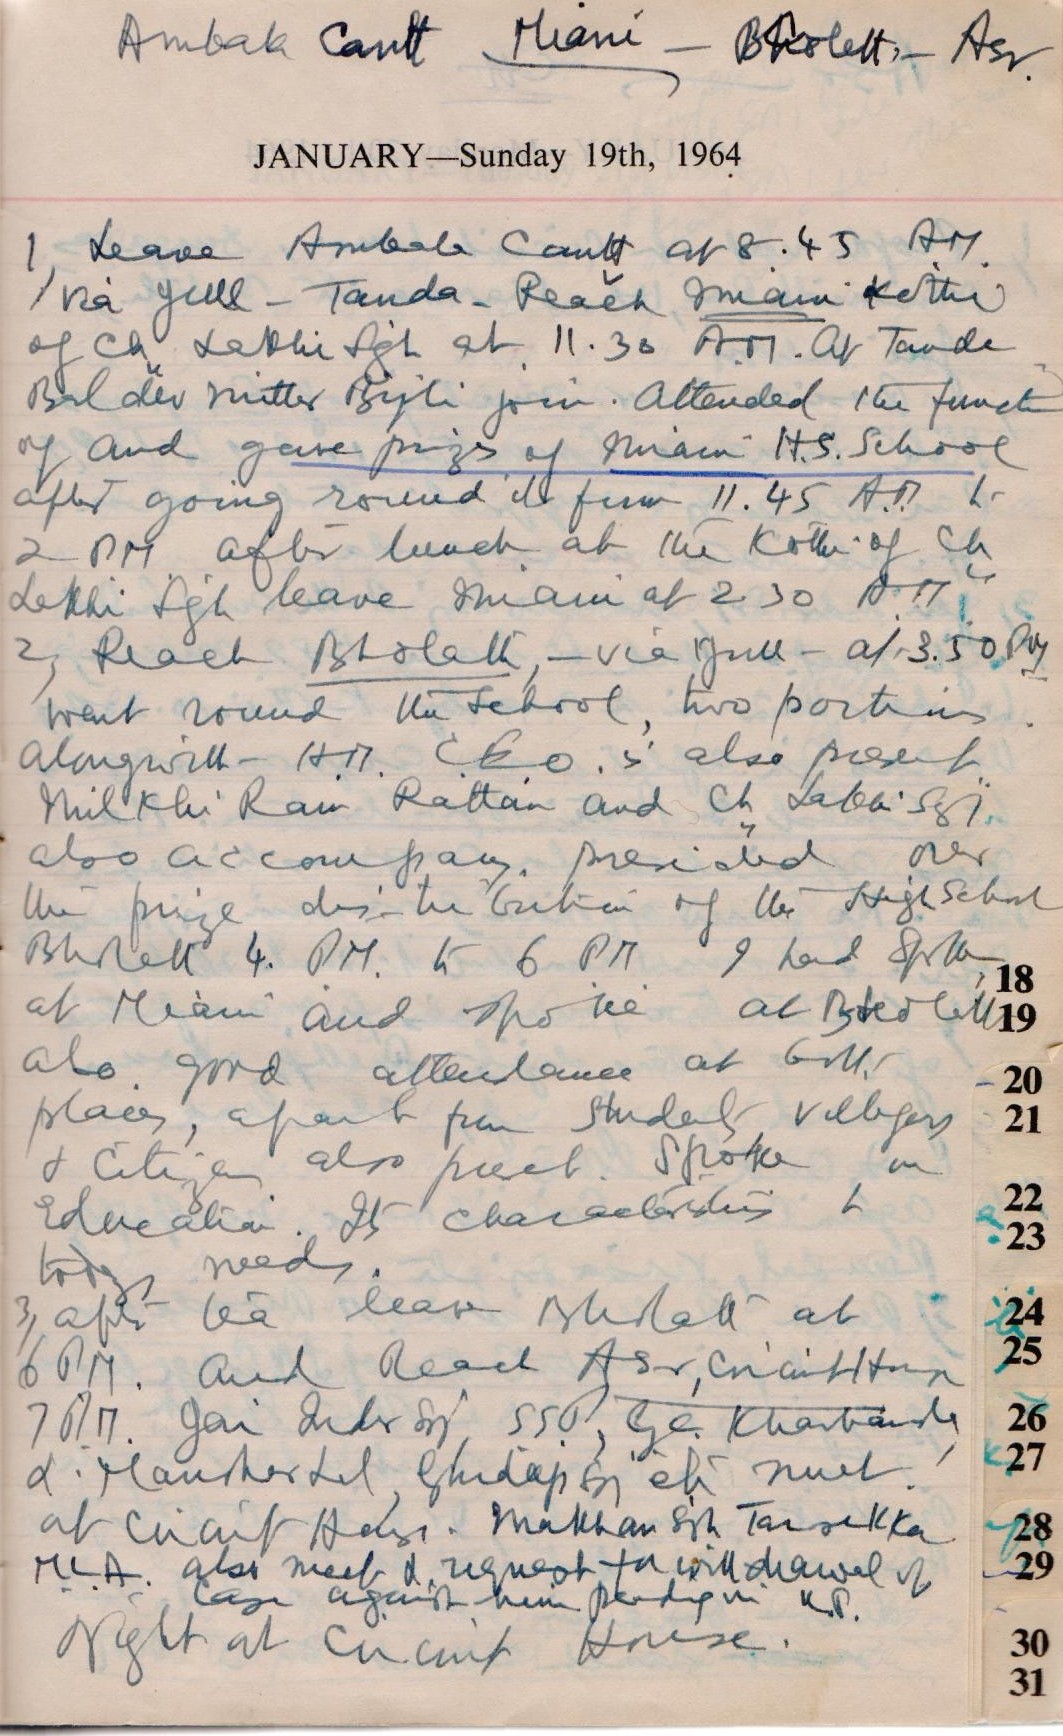 Ambala Cantt Miani - Bholath - Asr.
JANUARY—Sunday 19th, 1964
1, Leave Ambala Cantt at 8.45 AM.
via Jull - Tanda - Reach Miani Kothi
of Ch. Lakhi Sgh at 11.30 A.M. At Tanda
Baldev Mitter Bijli join. Attended the function
of and gave prizes of Miani H.S. School
after going round it from 11.45 A.M to
2 PM after lunch at the Kothi of Ch
Lakhi Sgh leave Miani at 2 30 A.M
2, Reach Bholath, - via Jull - at 3.50 PM
went round the School, two portions.
alongwith - H.M. C.E.O. is also present
Milkhi Ram Rattan and Ch Lakhi Sgh.
also accompany. presided over
the prize distribution of the High School
Bholath 4. PM. to 6 PM I had spoken
at Miani and spoke at Bholath
also. good attendance at both
places, apart from students villagers
& Citizens also present. Spoke on
Education. Its characteristics to
todays needs.
3, after tea leave Bholath at
6 PM. and Reach Asr, Circuit House
7 PM. Jai Inder Sgh SSP, Kharbanda,
Manohar Lal, met
at Circuit House. Makhan Sgh Tarsikka
M.L.A. also meet & request for withdrawal of
Case against him pending in
Night at Circuit House.
18
19
20
21
22
23
24
25
26
27
28
29
30
31